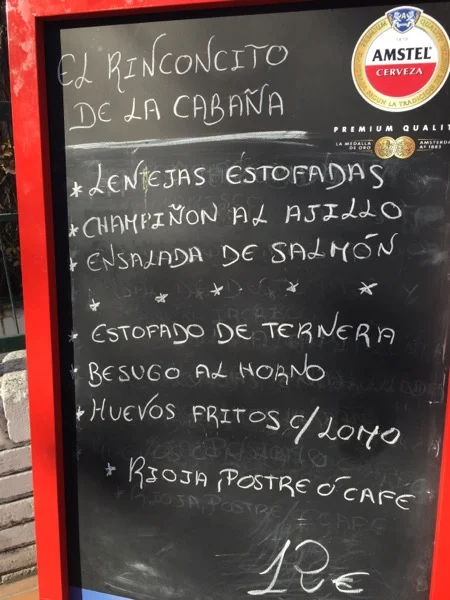 AMSTEL
CERVEZA
SEGÚN LA TRADICIÓN
PREMIUM QUALIT
LA MEDALLA DE ORO
AMSTERDA
Aº 1883
EL RINCONCITO
DE LA CABAÑA
* LENTEJAS ESTOFADAS
* CHAMPIÑON AL AJILLO
* ENSALADA DE SALMÓN
* * * * *
* ESTOFADO DE TERNERA
* BESUGO AL HORNO
* HUEVOS FRITOS C/LOMO
* RIOJA, POSTRE Ó CAFE
* RIOJA, POSTRE Ó CAFE
12€